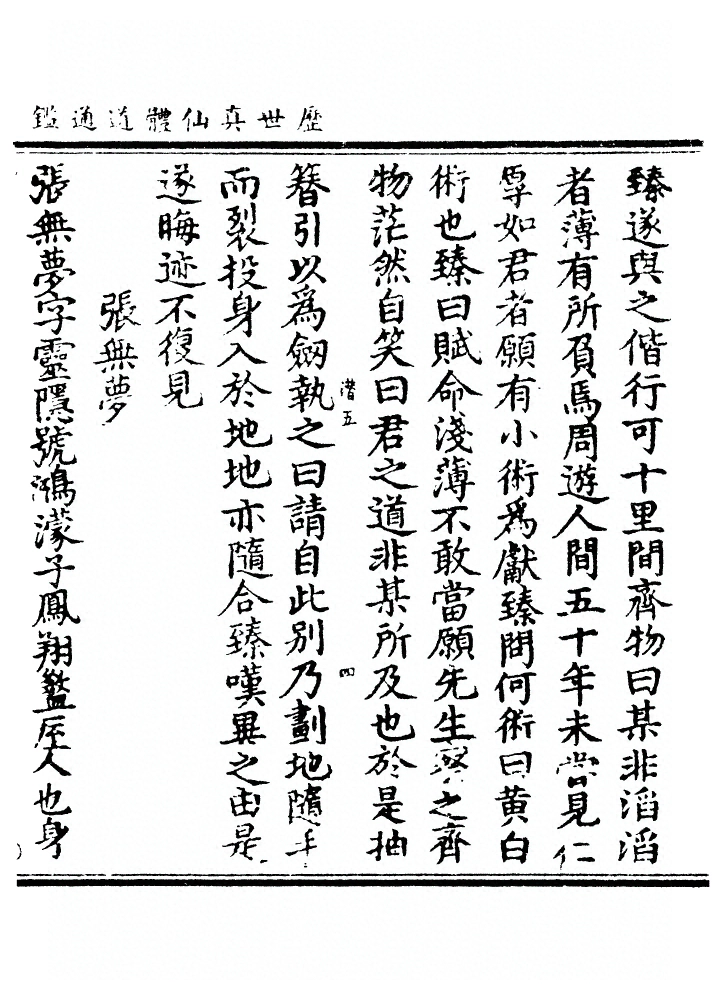 歷世真仙體道通鑑
臻遂與之偕行可十里間齊物曰某非滔滔
者薄有所負焉周遊人間五十年未嘗見仁
厚如君者願有小術爲獻臻問何術曰黄白
術也臻曰賦命淺薄不敢當願先生賢之齊
物茫然自笑曰君之道非某所及也於是抽
潛五
四
簪引以爲劒執之曰請自此别乃劃地隨手
而裂投身入於地地亦隨合臻嘆異之由是
遂晦迹不復見
張無夢
張無夢字靈隱號鴻濛子鳳翔盩厔人也身